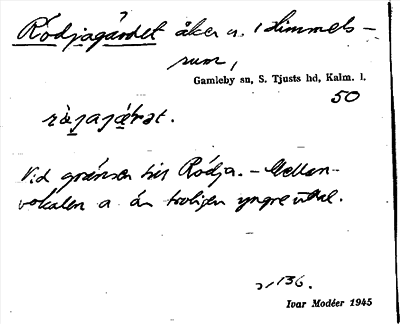 Rödjagärdet åker u. Himmels-
rum,
Gamleby sn, S. Tjusts hd, Kalm. l.
50
Vid gränsen till Rödja. – Mellan-
vokalen a är troligen yngre uttal.
136.
Ivar Modéer 1945